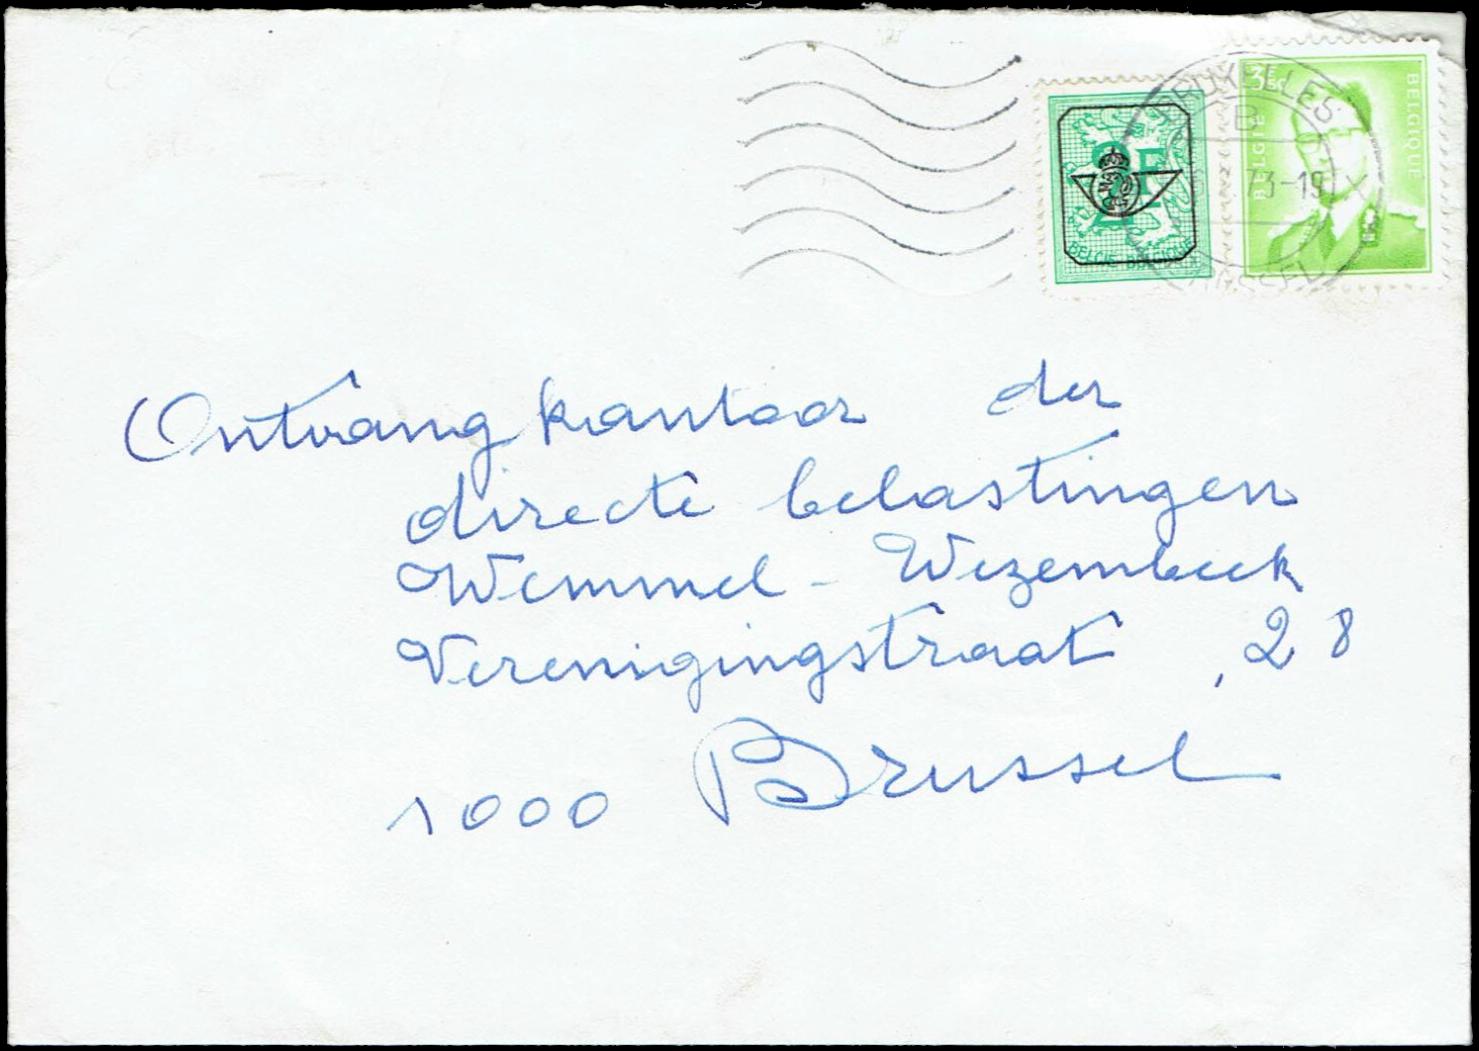 BRUXELLES
B
73-19
BRUSSEL
2F
BELGIE BELGIQUE
3F50
BELGIE
BELGIQUE
Ontvangkantoor der
directe belastingen
Wemmel - Wezembeek
Verenigingstraat , 28
1000 Brussel